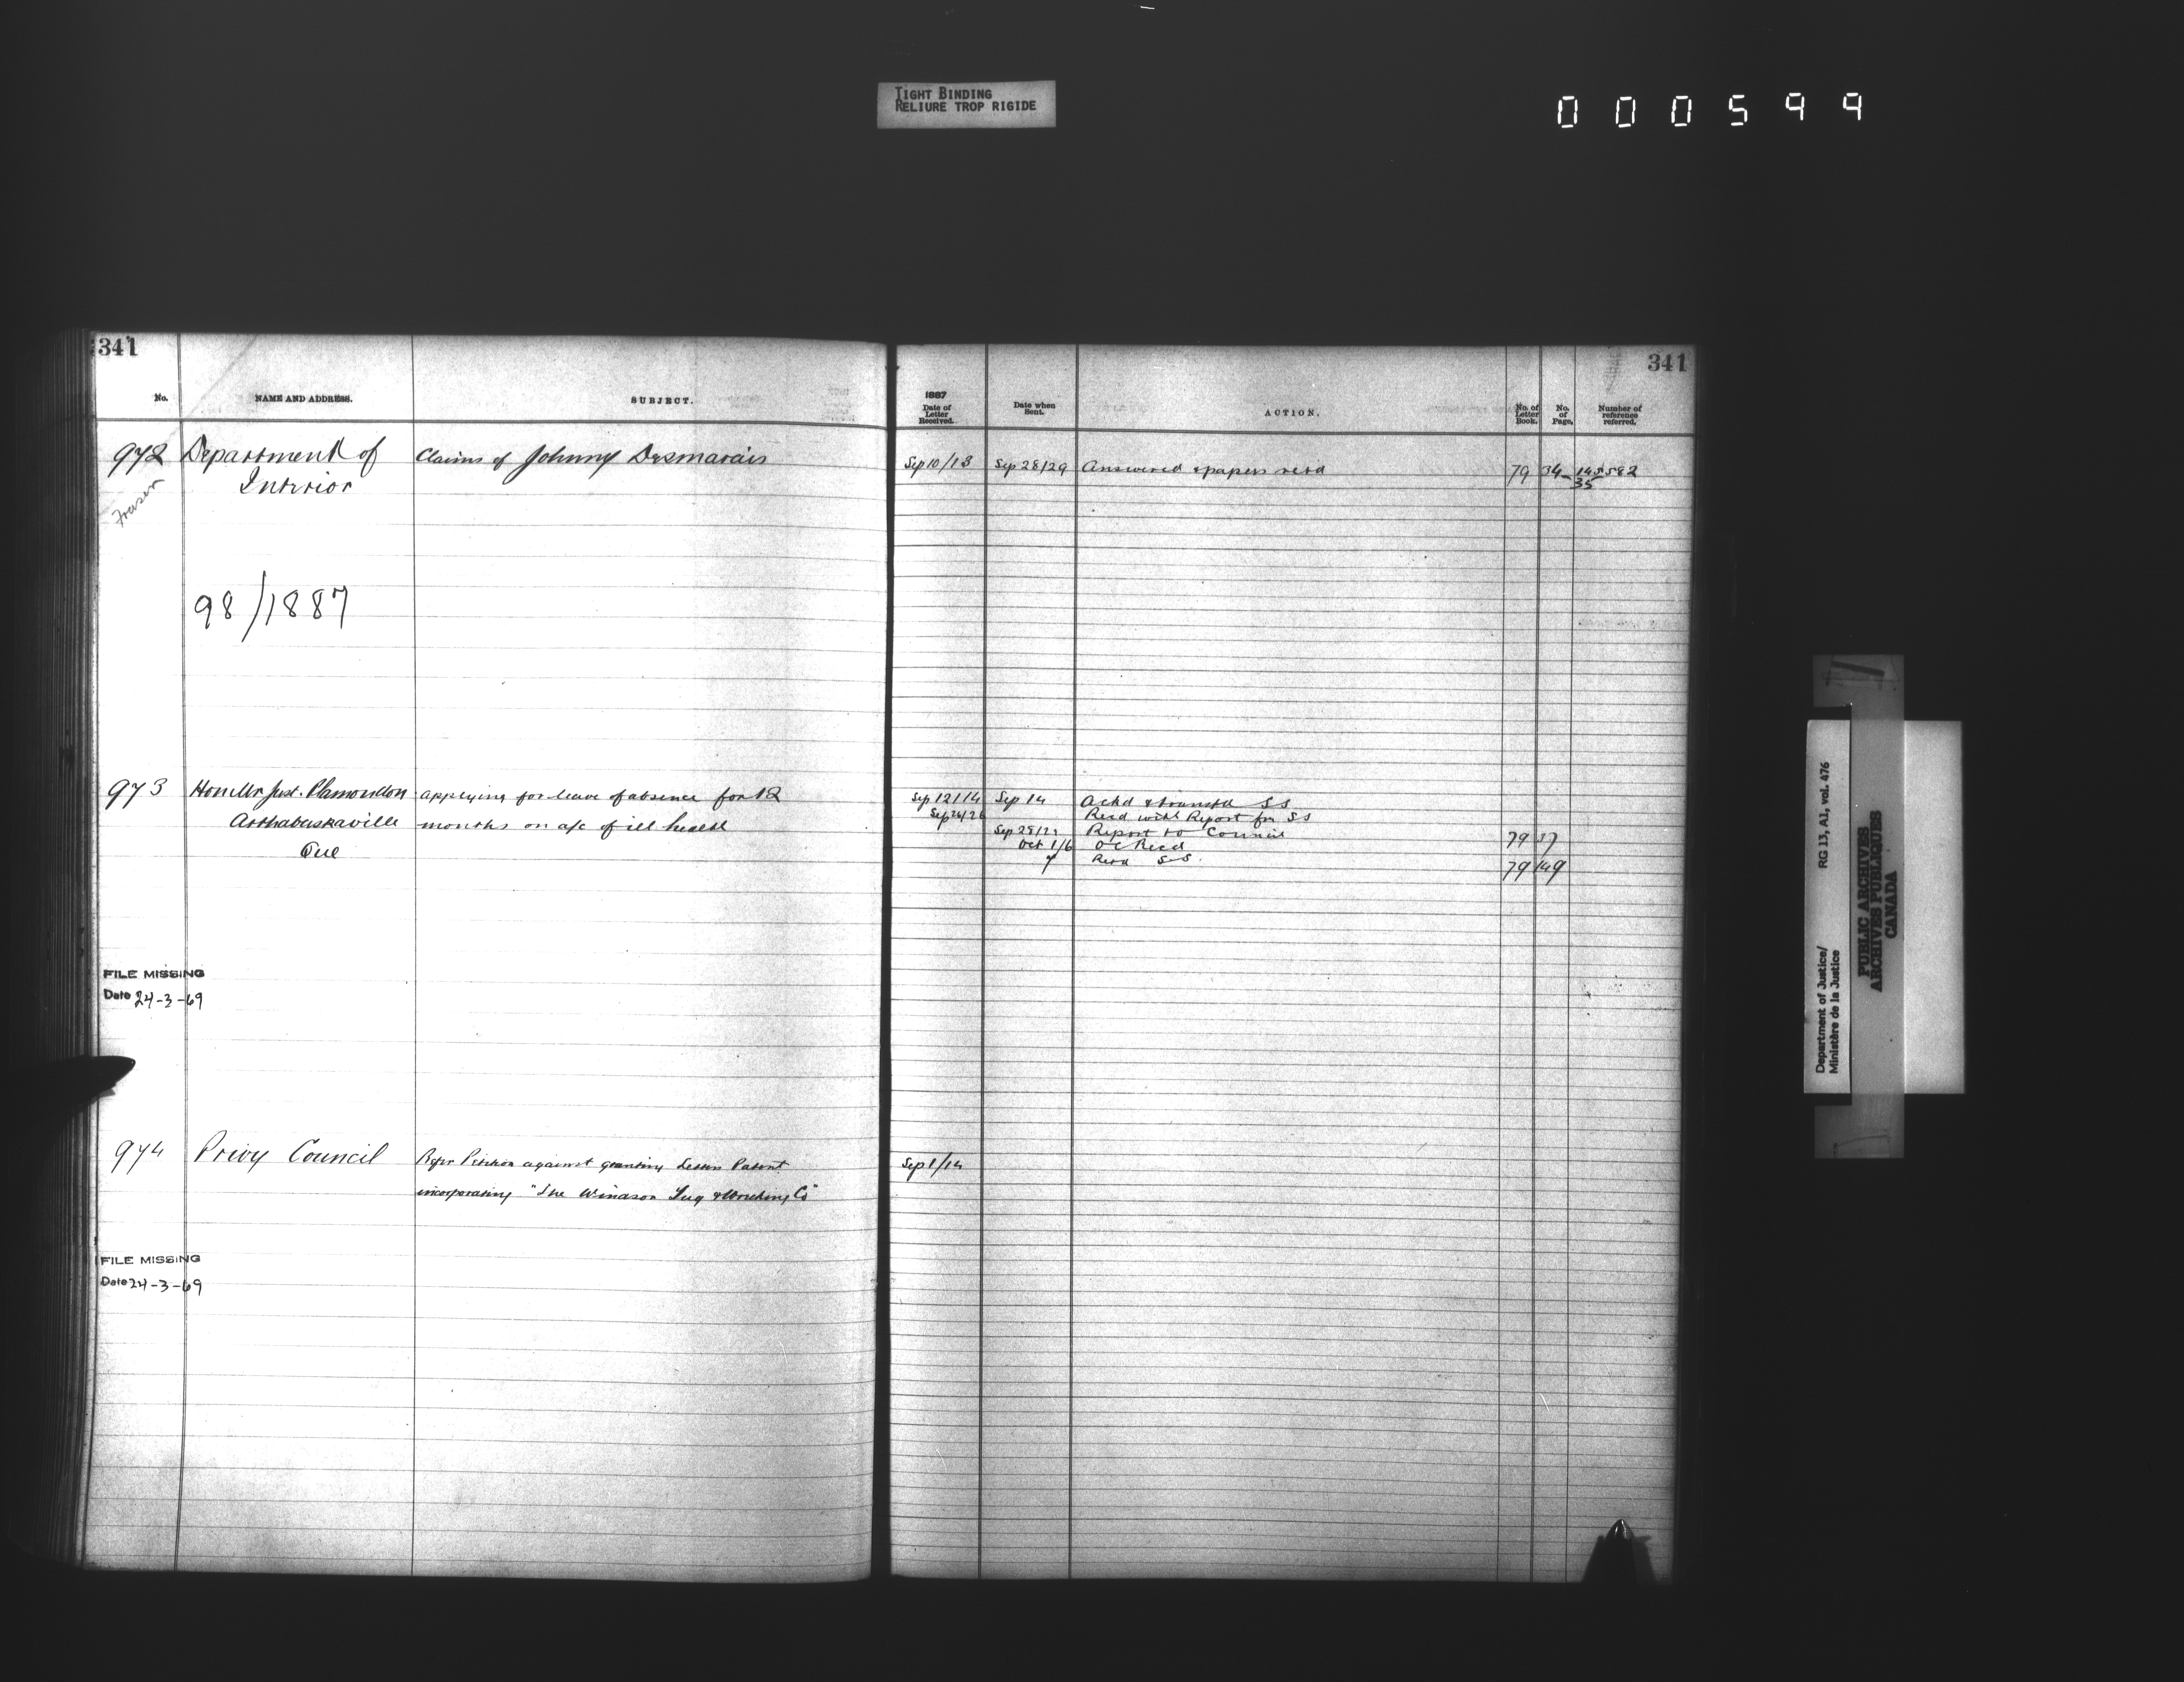 TIGHT BINDING
RELIURE TROP RIGIDE
000599
341
No. NAME AND ADDRESS. SUBJECT.
972 Department of Claims of Johnny Desmarais
Interior
Fraser
98/1887
973 Hon Mr Just. Plamondon applying for leave of absence for 12
Arthabaskaville months on a/c of ill health
Que
FILE MISSING
Date 24-3-69
974 Privy Council Refer Petition against granting Letters Patent
incorporating "The Windsor Tug & Wrecking Co"
FILE MISSING
Date 24-3-69
341
1887
Date of Letter Received. Date when Sent. ACTION. No. of Letter Book. No. of Page. Number of reference referred.
Sep 10/13 Sep 28/29 Answered & papers retd 79 34 145582
35
Sep 12/14 Sep 14 Ackd & transtd SS
Sep 24/26 Recd with Report fm SS
Sep 28/29 Report to Council 79 37
Oct 1/6 OC Recd
7 Retd SS. 79 149
Sep 1/14
Department of Justice/ RG 13, A1, vol. 476
Ministère de la Justice
PUBLIC ARCHIVES
ARCHIVES PUBLIQUES
CANADA